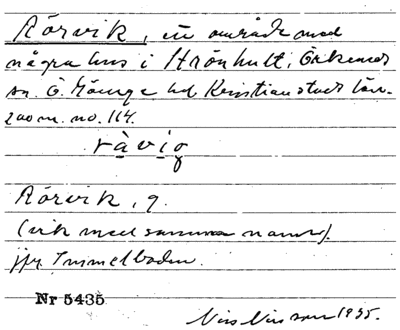 Rörvik, ett område med
några hus i Strönhult, Örkeneds
sn. Ö. Göinge hd. Kristianstads län.
zoom. no. 114.
ràvig
Rörvik, 9.
(vik med samma namn).
jfr Immelboden.
Nr 5435
Nils Nilsson 1935.